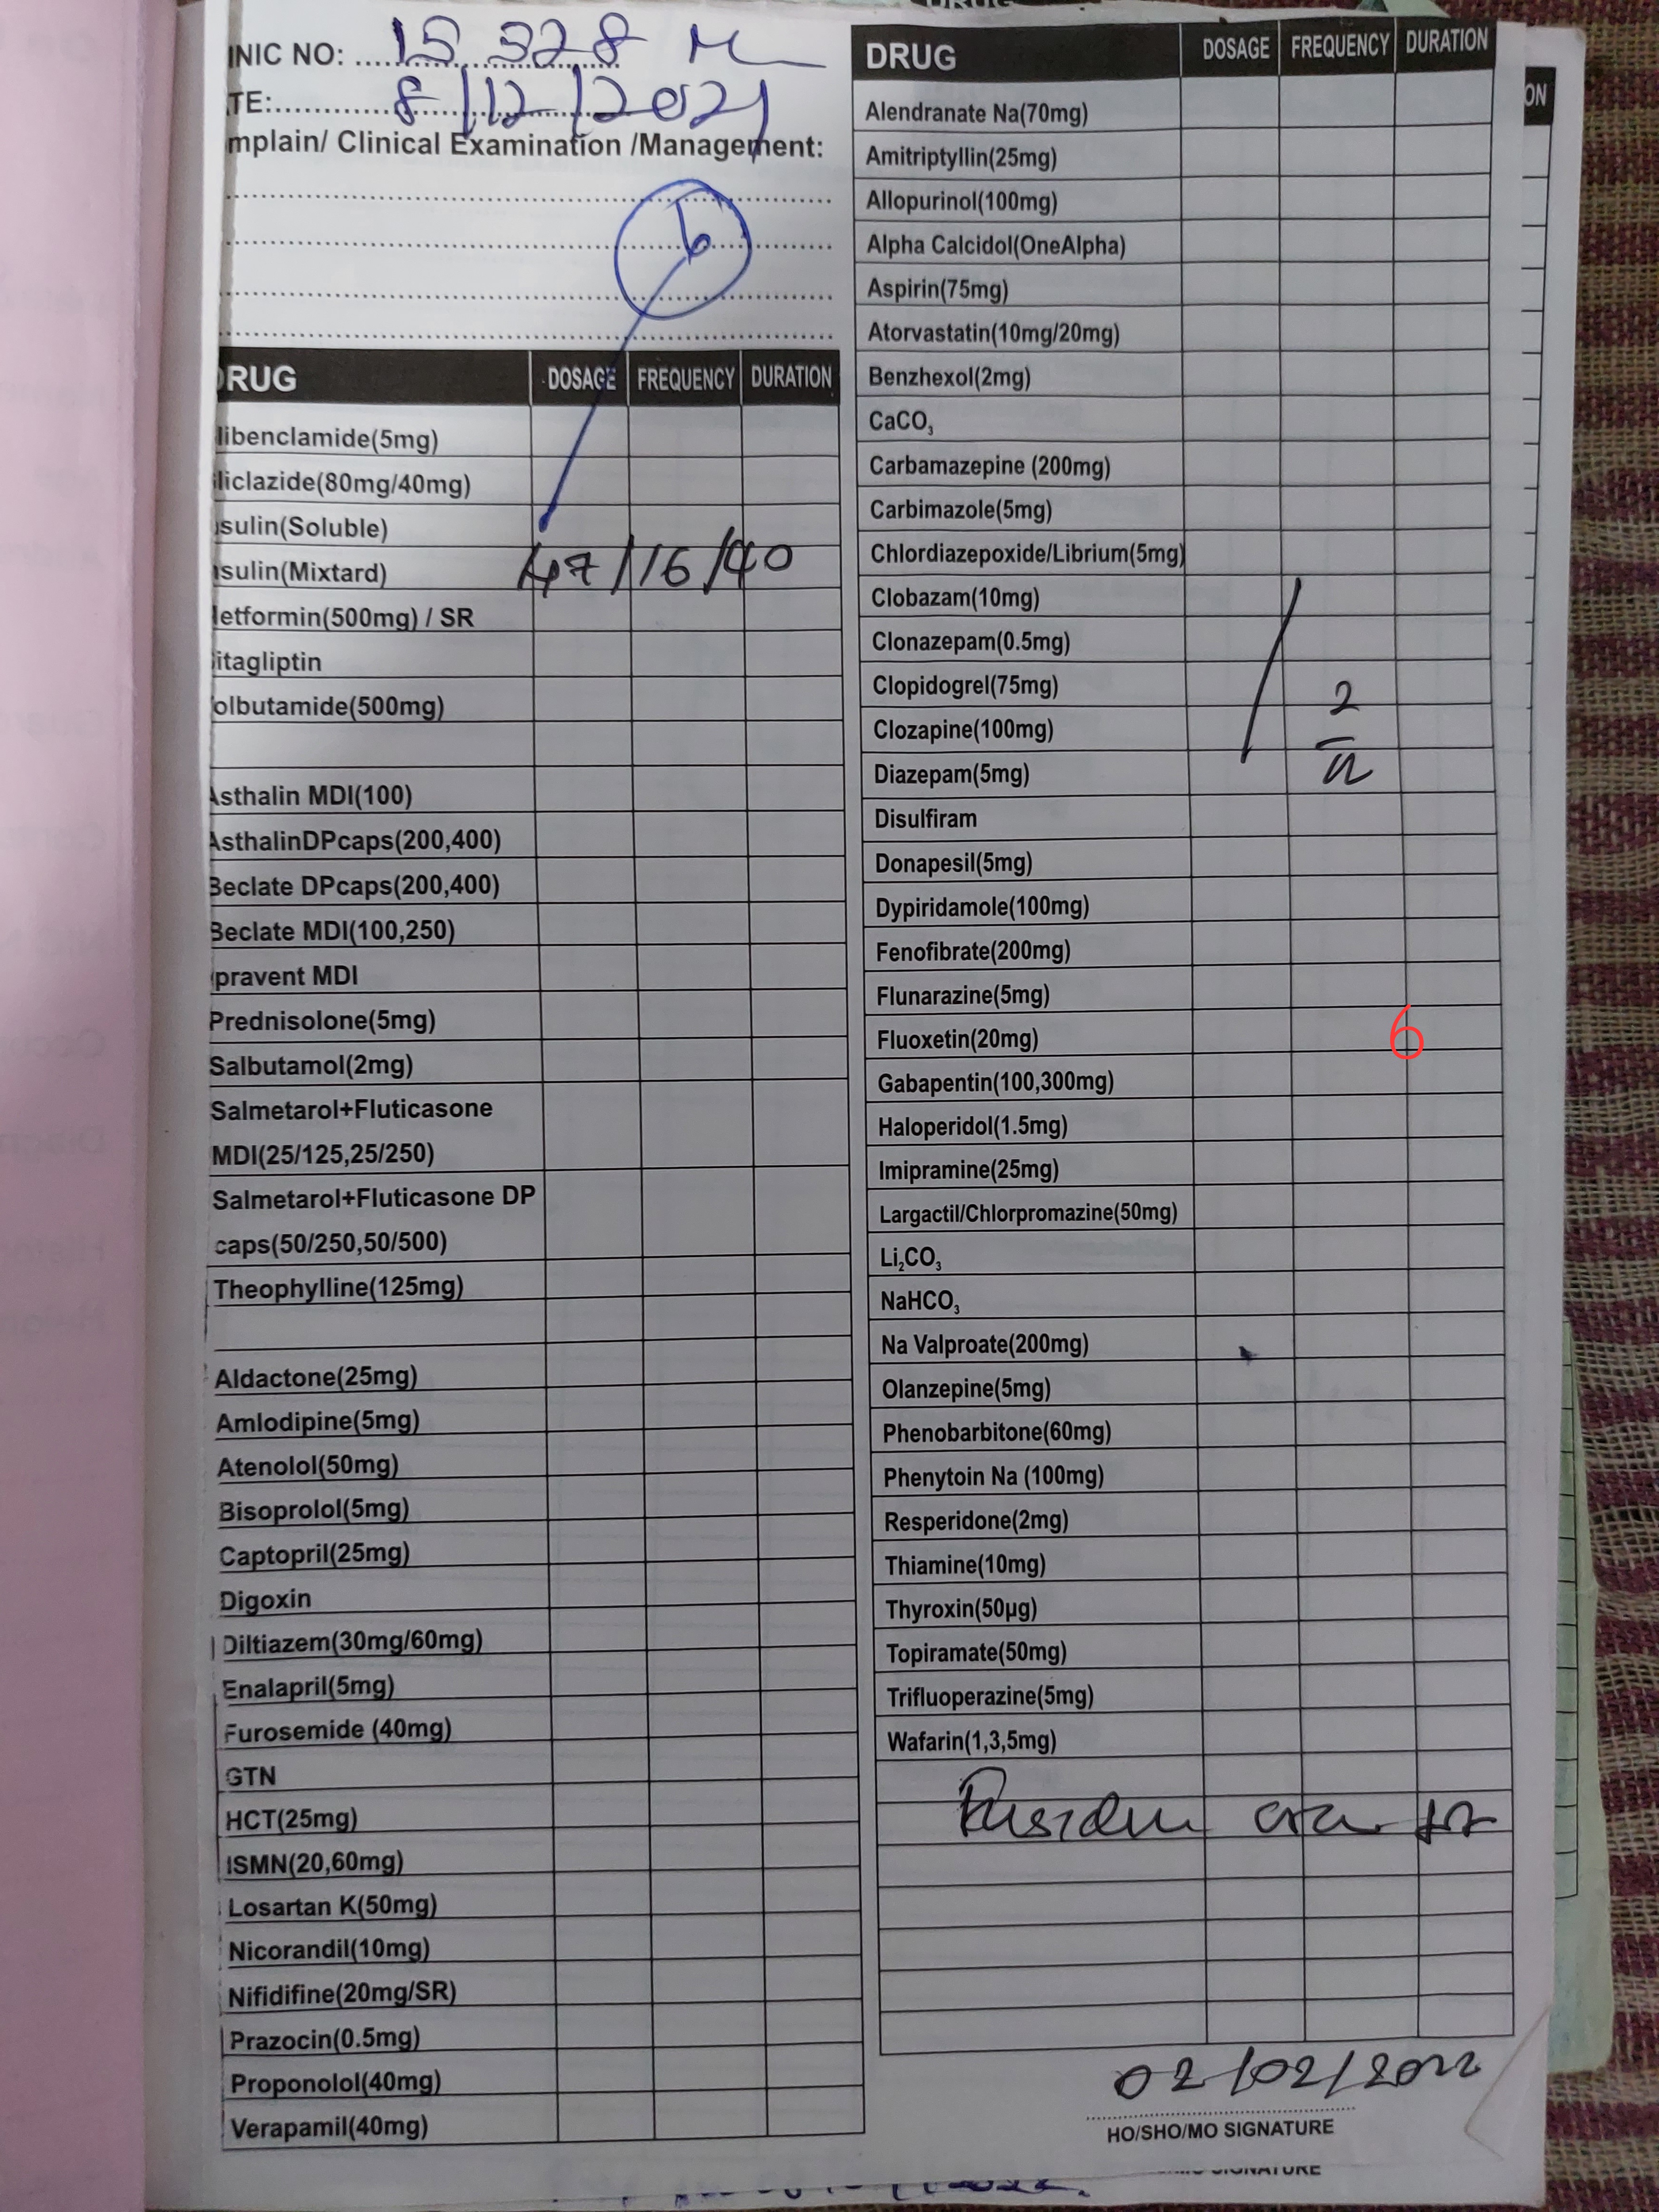 INIC NO: 15 328 M
TE: 8/12/2021
mplain/ Clinical Examination /Management:
6
RUG DOSAGE FREQUENCY DURATION
libenclamide(5mg)
liclazide(80mg/40mg)
sulin(Soluble)
sulin(Mixtard) 47/16/40
letformin(500mg) / SR
itagliptin
olbutamide(500mg)
Asthalin MDI(100)
AsthalinDPcaps(200,400)
Beclate DPcaps(200,400)
Beclate MDI(100,250)
pravent MDI
Prednisolone(5mg)
Salbutamol(2mg)
Salmetarol+Fluticasone
MDI(25/125,25/250)
Salmetarol+Fluticasone DP
caps(50/250,50/500)
Theophylline(125mg)
Aldactone(25mg)
Amlodipine(5mg)
Atenolol(50mg)
Bisoprolol(5mg)
Captopril(25mg)
Digoxin
Diltiazem(30mg/60mg)
Enalapril(5mg)
Furosemide (40mg)
GTN
HCT(25mg)
ISMN(20,60mg)
Losartan K(50mg)
Nicorandil(10mg)
Nifidifine(20mg/SR)
Prazocin(0.5mg)
Proponolol(40mg)
Verapamil(40mg)
DRUG DOSAGE FREQUENCY DURATION
Alendranate Na(70mg)
Amitriptyllin(25mg)
Allopurinol(100mg)
Alpha Calcidol(OneAlpha)
Aspirin(75mg)
Atorvastatin(10mg/20mg)
Benzhexol(2mg)
CaCO₃
Carbamazepine (200mg)
Carbimazole(5mg)
Chlordiazepoxide/Librium(5mg)
Clobazam(10mg)
Clonazepam(0.5mg)
Clopidogrel(75mg) 2
Clozapine(100mg)
Diazepam(5mg)
Disulfiram
Donapesil(5mg)
Dypiridamole(100mg)
Fenofibrate(200mg)
Flunarazine(5mg)
Fluoxetin(20mg) 6
Gabapentin(100,300mg)
Haloperidol(1.5mg)
Imipramine(25mg)
Largactil/Chlorpromazine(50mg)
Li₂CO₃
NaHCO₃
Na Valproate(200mg)
Olanzepine(5mg)
Phenobarbitone(60mg)
Phenytoin Na (100mg)
Resperidone(2mg)
Thiamine(10mg)
Thyroxin(50µg)
Topiramate(50mg)
Trifluoperazine(5mg)
Wafarin(1,3,5mg)
02/02/2022
HO/SHO/MO SIGNATURE
ON